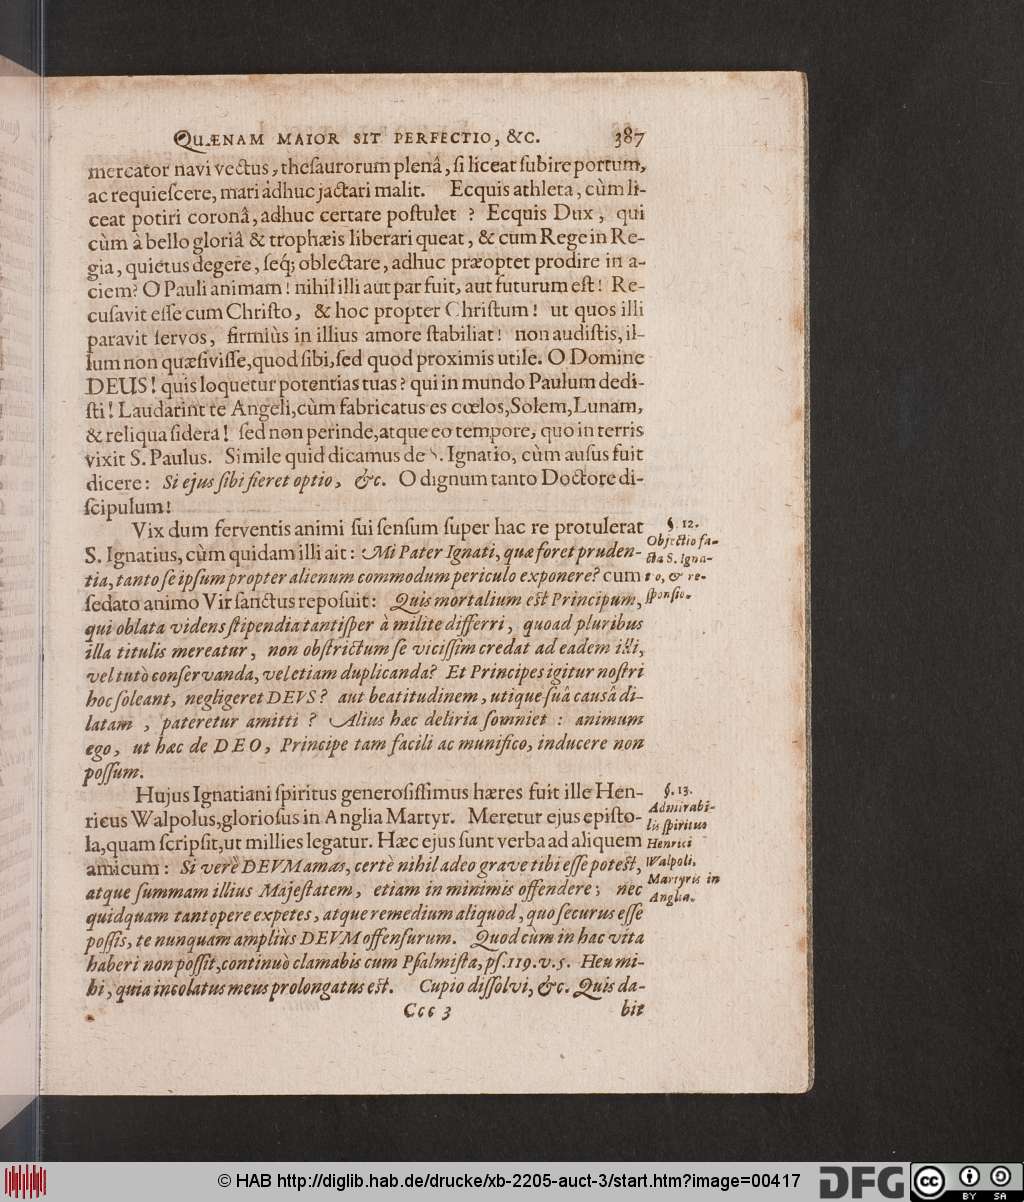 QUÆNAM MAIOR SIT PERFECTIO, &C. 387
mercator navi vectus, theſaurorum plenâ, ſi liceat ſubire portum,
ac requieſcere, mari adhuc jactari malit. Ecquis athleta, cùm li-
ceat potiri coronâ, adhuc certare poſtulet ? Ecquis Dux, qui
cùm à bello gloriâ & trophæis liberari queat, & cum Rege in Re-
gia, quietus degere, ſeq́; oblectare, adhuc præoptet prodire in a-
ciem? O Pauli animam! nihil illi aut par fuit, aut futurum eſt! Re-
cuſavit eſſe cum Chriſto, & hoc propter Chriſtum! ut quos illi
paravit ſervos, firmiùs in illius amore ſtabiliat! non audiſtis, il-
lum non quæſiviſſe, quod ſibi, ſed quod proximis utile. O Domine
DEUS! quis loquetur potentias tuas? qui in mundo Paulum dedi-
ſti! Laudarint te Angeli, cùm fabricatus es cœlos, Solem, Lunam,
& reliqua ſidera! ſed non perinde, atque eo tempore, quo in terris
vixit S. Paulus. Simile quid dicamus de S. Ignatio, cùm auſus fuit
dicere: Si ejus ſibi fieret optio, &c. O dignum tanto Doctore di-
ſcipulum!
Vix dum ferventis animi ſui ſenſum ſuper hac re protulerat
S. Ignatius, cùm quidam illi ait: Mi Pater Ignati, quæ foret pruden-
tia, tanto ſe ipſum propter alienum commodum periculo exponere? cum
ſedato animo Vir ſanctus repoſuit: Quis mortalium eſt Principum,
qui oblata videns ſtipendia tantiſper à milite differri, quoad pluribus
illa titulis mereatur, non obſtrictum ſe viciſſim credat ad eadem illi,
vel tutò conſervanda, vel etiam duplicanda? Et Principes igitur noſtri
hoc ſoleant, negligeret DEVS? aut beatitudinem, utique ſuâ causâ di-
latam, pateretur amitti ? Alius hæc deliria ſomniet : animum
ego, ut hæc de DEO, Principe tam facili ac munifico, inducere non
poſſum.
§. 12.
Objectio fa-
cta S. Igna-
tio, & re-
ſponſio.
Hujus Ignatiani ſpiritus generoſiſſimus hæres fuit ille Hen-
ricus Walpolus, glorioſus in Anglia Martyr. Meretur ejus epiſto-
la, quam ſcripſit, ut millies legatur. Hæc ejus ſunt verba ad aliquem
amicum: Si verè DEVM amas, certè nihil adeo grave tibi eſſe poteſt,
atque ſummam illius Majeſtatem, etiam in minimis offendere; nec
quidquam tantopere expetes, atque remedium aliquod, quo ſecurus eſſe
poſſis, te nunquam ampliùs DEVM offenſurum. Quod cùm in hac vita
haberi non poſſit, continuò clamabis cum Pſalmiſta, pſ. 119. v. 5. Heu mi-
hi, quia incolatus meus prolongatus eſt. Cupio diſſolvi, &c. Quis da-
§. 13.
Admirabi-
lis ſpiritus
Henrici
Walpoli,
Martyris in
Anglia.
Ccc 3 bit
© HAB http://diglib.hab.de/drucke/xb-2205-auct-3/start.htm?image=00417
DFG
cc BY SA